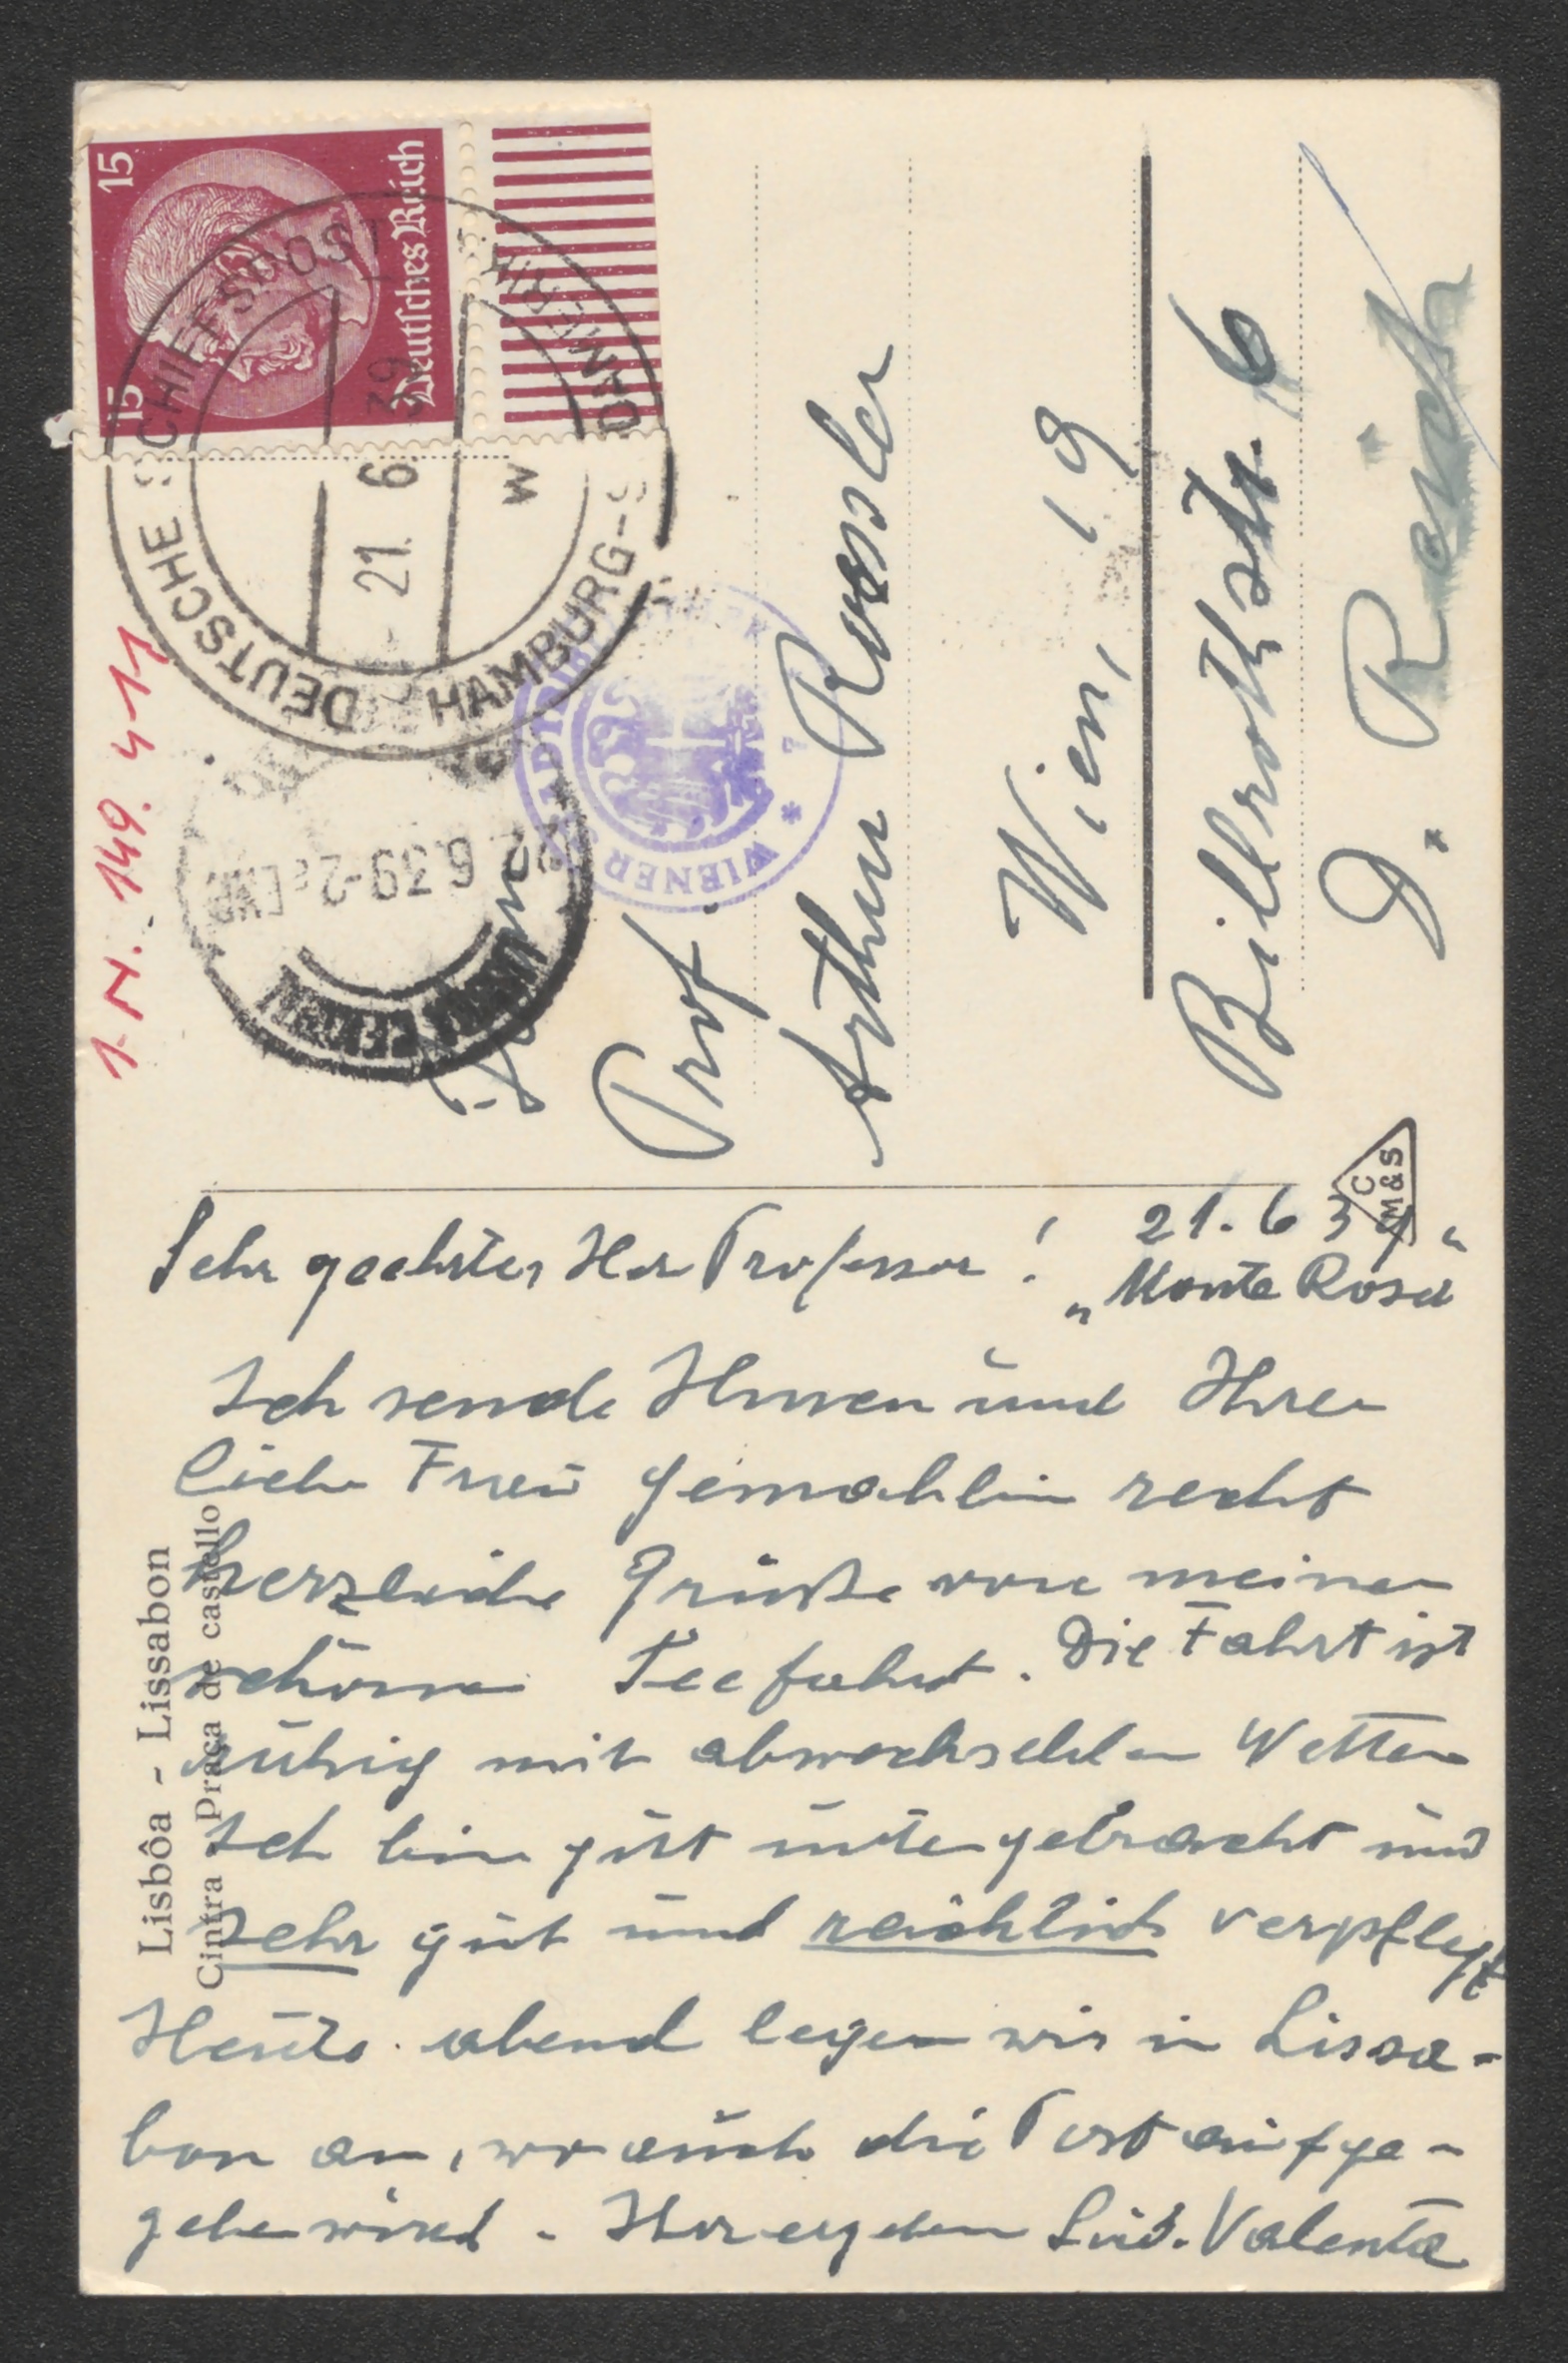 15
15
Deutsches Reich
DEUTSCHE SCHIFFSPOST
HAMBURG-
21. 6
39
W
WIENER
*
7
.6.39-2
I. N. 149.411
Herrn
Prof.
Arthur Roessler
Wien, 19
Billrothstr. 6
D. Reich
C
M&S
Lisbôa - Lissabon
Cintra Praça de castello
Sehr geehrter Herr Professor! 21.6 39
„Monte Rosa“
Ich sende Ihnen und Ihrer
liebe Frau Gemahlin recht
herzliche Grüße von meiner
schönen Seefahrt. Die Fahrt ist
ruhig mit abwechselden Wetter
Ich bin gut untergebracht und
sehr gut und reichlich verpflegt
Heute abend legen wir in Lissa-
bon an, wo auch die Post aufge-
geben wird. Ihr ergebener Lud. Valenta